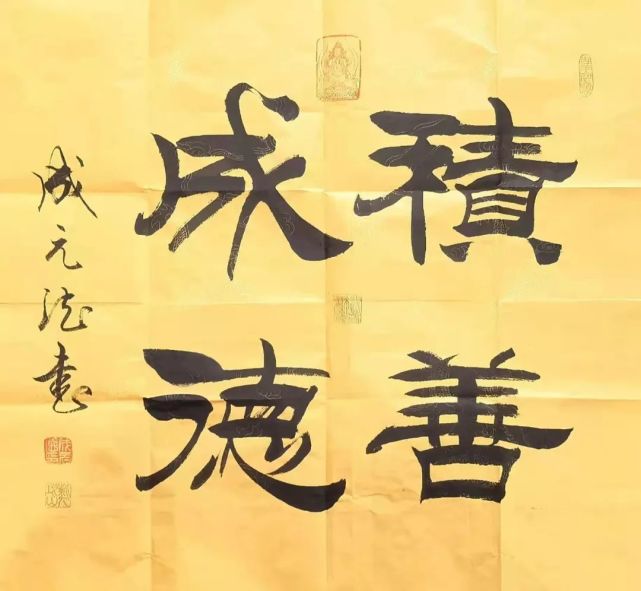 積善
成德
成元法書